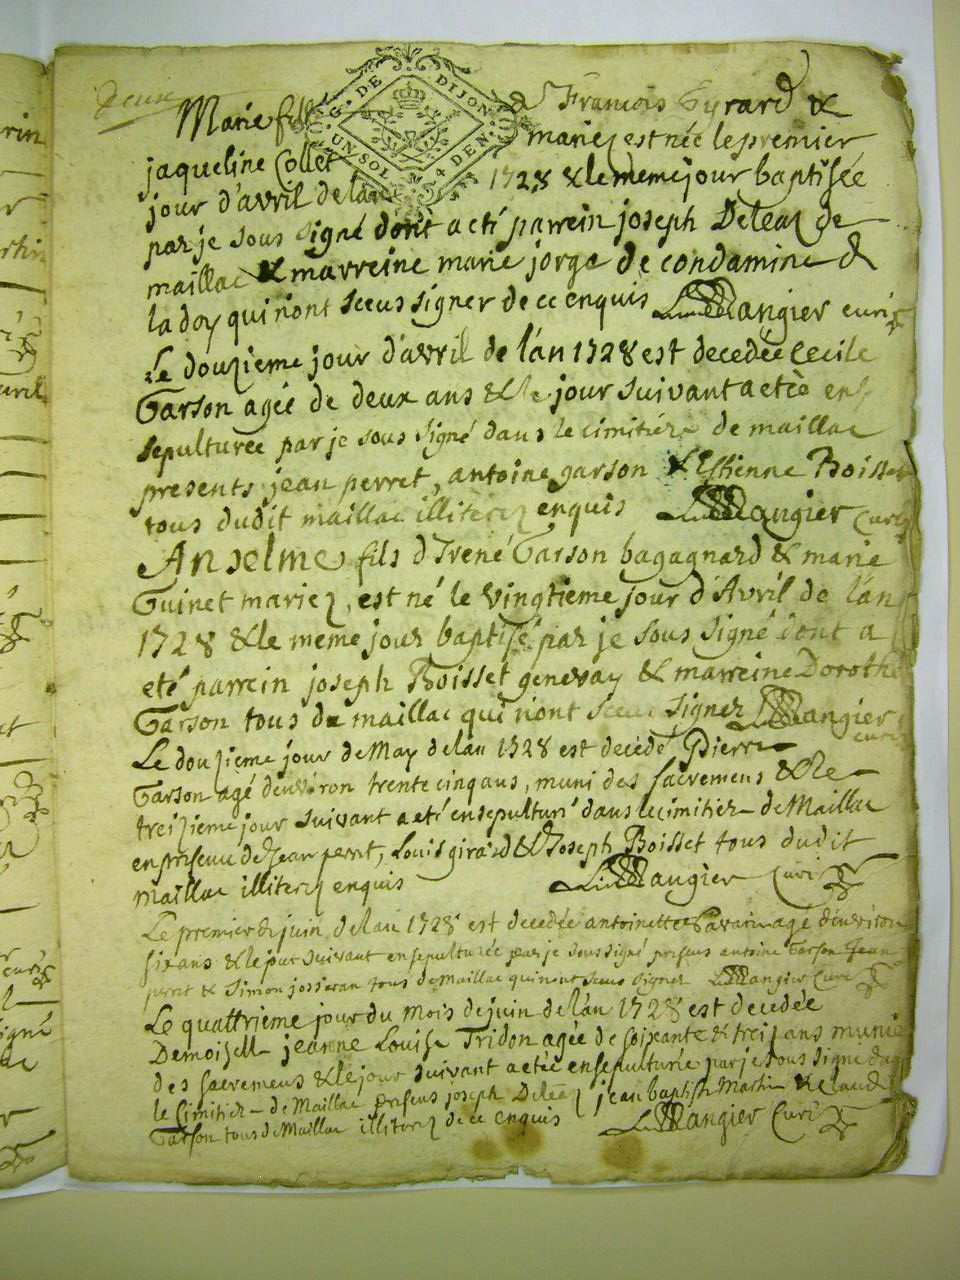 deux
G. DE DIJON
UN SOL 4 DEN
Marie fille de Francois Gyrard &
jaqueline Collet mariez est née le premier
jour d'avril de lan 1728 & le meme jour baptisée
par je sous signé dont a eté parrein joseph Deleaz de
maillac & marreine marie jorge de condamine d
la doy qui n'ont sceus signer de ce enquis Mangier curé
Le douzieme jour d'avril de l'án 1728 est decedée Cecile
Garson agée de deux ans & le jour suivant a etée en
sepulturée par je sous signé dans le cimitiére de maillac
presents jean perret, antoine garson & Estienne Boisset
tous dudit maillac illiterez enquis Mangier Curé
Anselme fils d'Irené Garson bagagnard & marie
Guinet mariez, est né le vingtieme jour d'Avril de l'án
1728 & le meme jour baptisé par je sous signé dont a
eté parrein joseph Boisset genevay & marreine Dorothé
Garson tous de maillac qui n'ont sceus signer Mangier
curé
Le douzieme jour de May de lan 1728 est decedé Pierre
Garson agé denviron trente cinq ans, muni des sacremens & le
treizieme jour suivant a eté ensepulturé dans le cimitier de Maillac
en presence de Jean perret, Louis girard & Joseph Boisset tous dudit
maillac illiterez enquis Mangier Curé
Le premier de juin de lan 1728 est decedée antoinette Savarin agé denviron
six ans & le jour suivant ensepulturée par je sous signé presens antoine Garson Jean
perret & Simon josseran tous de Maillac qui n'ont sceus signer Mangier Curé
Le quattrieme jour du mois de juin de lán 1728 est decedée
Demoiselle jeanne Louise Tridon agée de soixante & treis ans munie
des sacremens & le jour suivant a etée ensepulturée par je sous signé dans
le Cimitier de Maillac presens joseph Deleaz, jean baptiste Martin & Claude
Garson tous de Maillac illiterez de ce enquis Mangier Curé